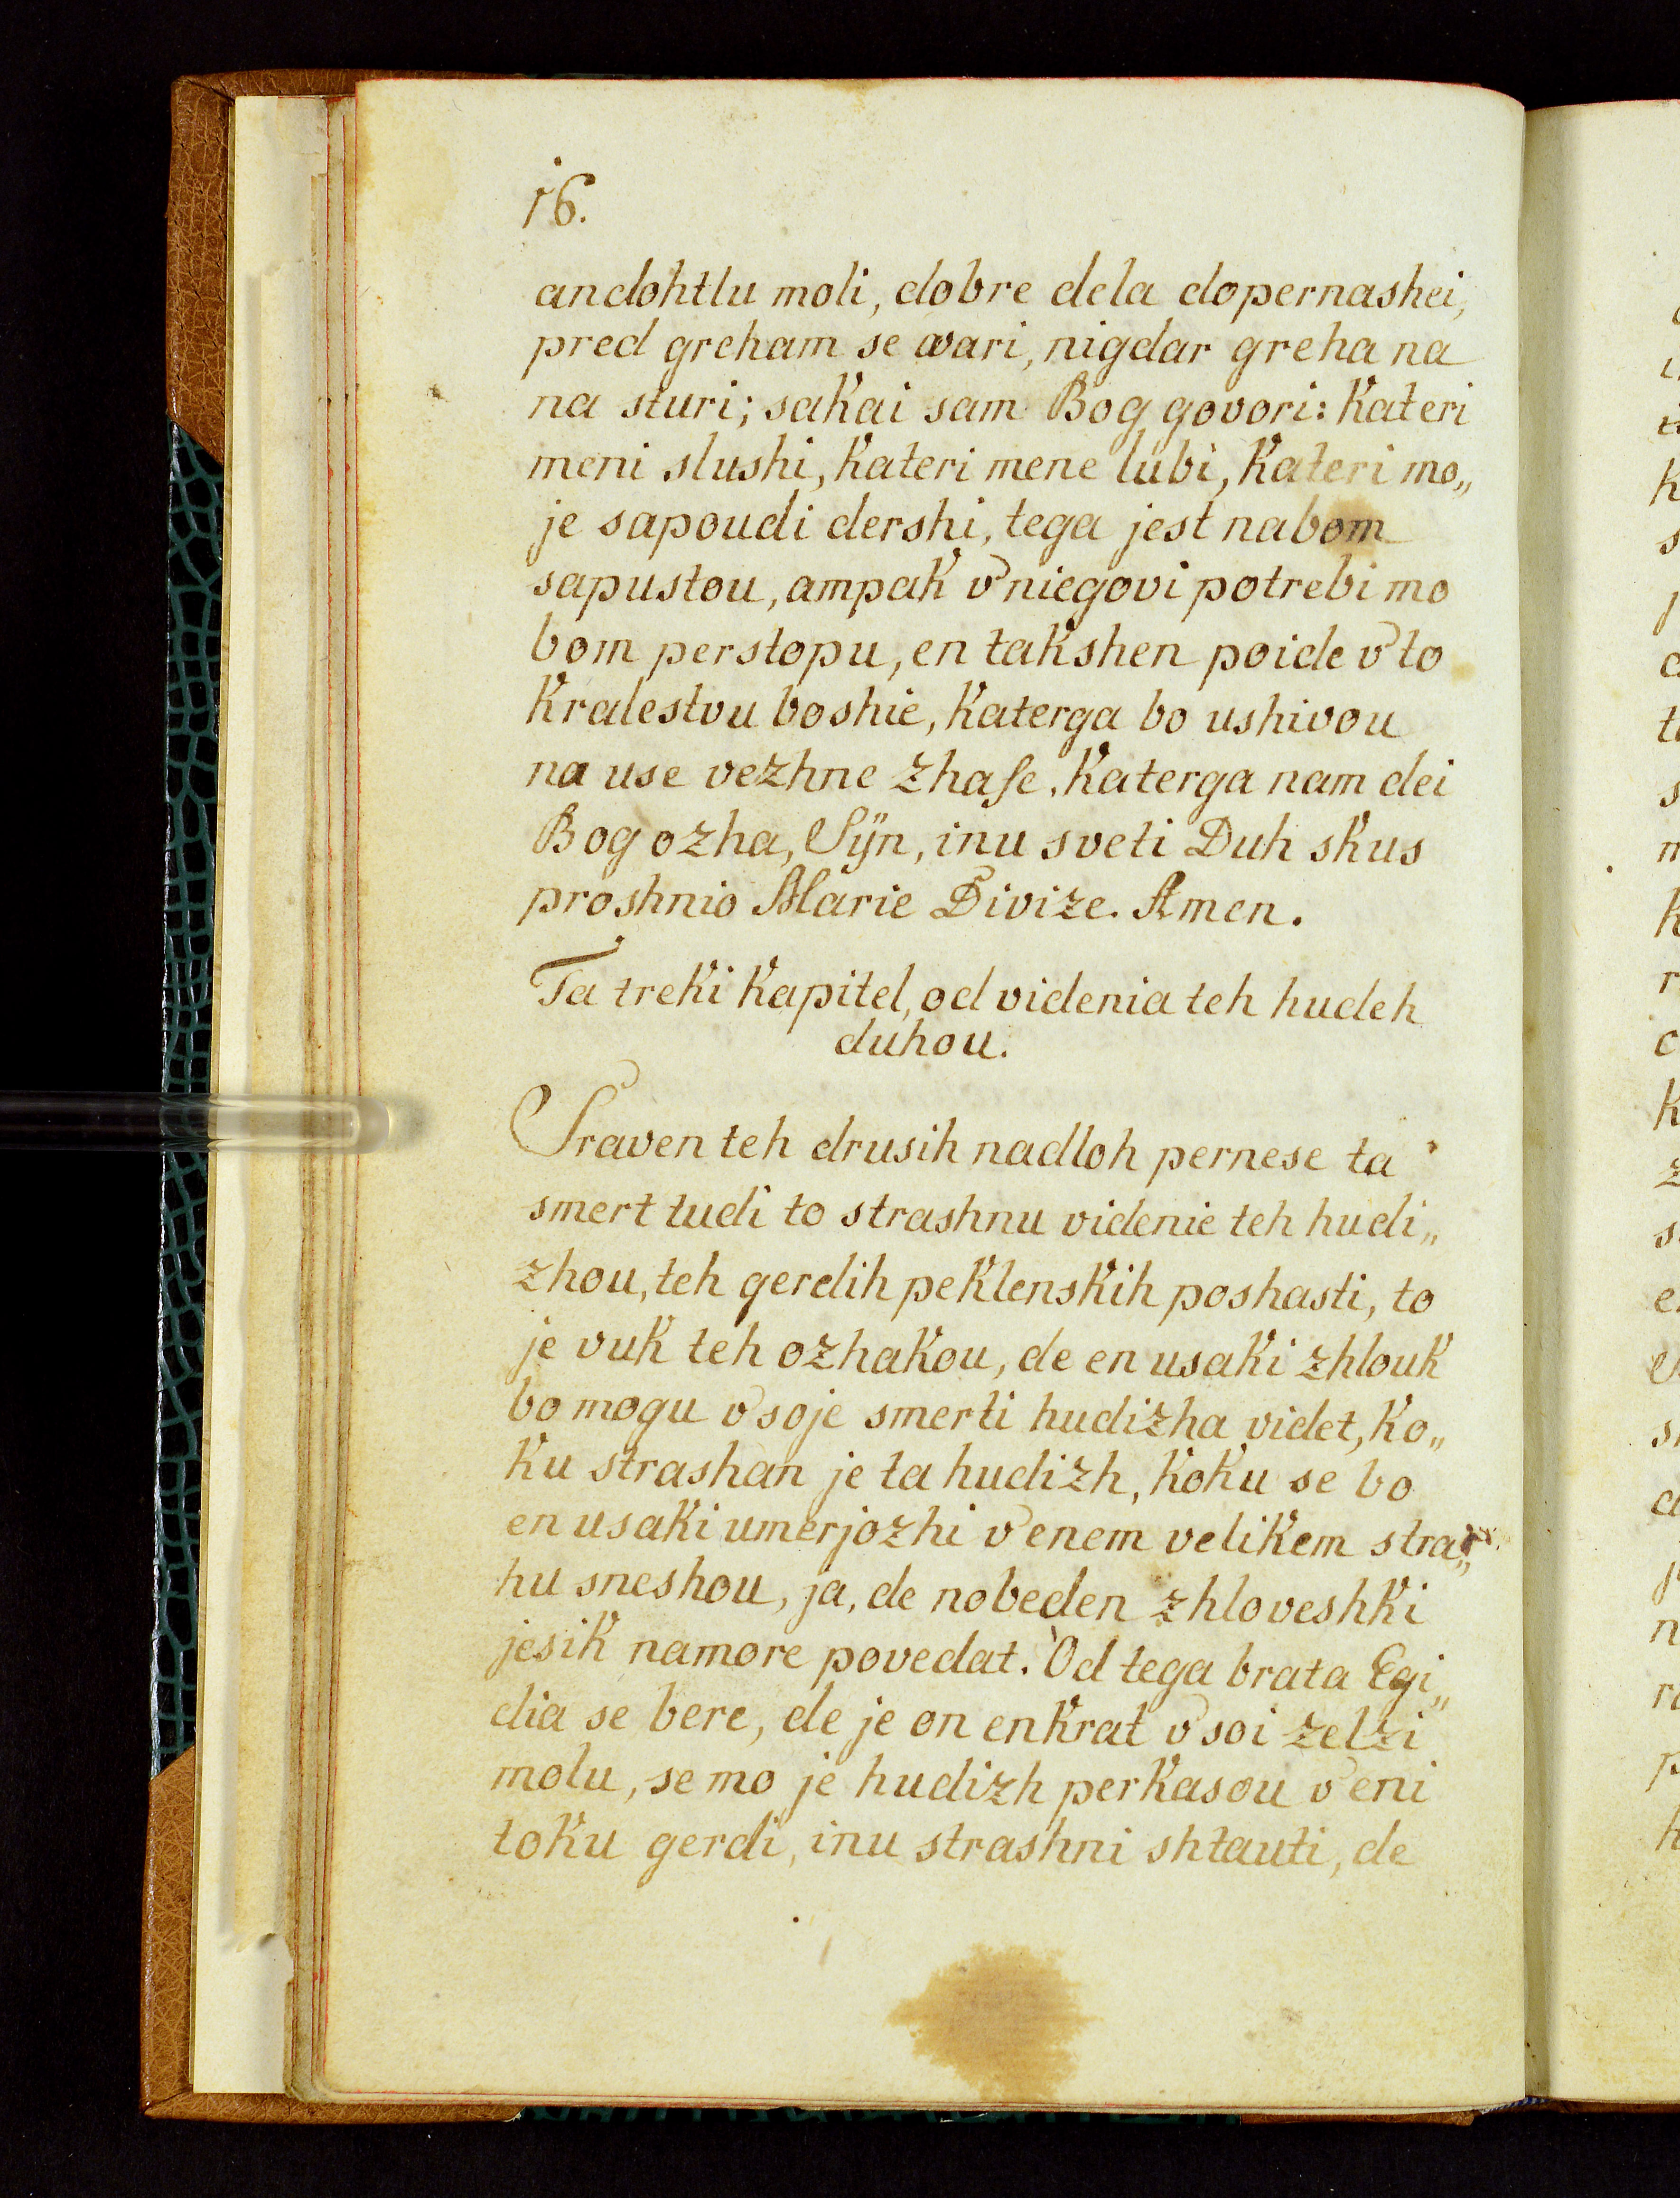 16.
andohtlu moli, dobre dela dopernashei,
pred greham se wari, nigdar greha na
na sturi; sakai sam Bog govori: Kateri
meni slushi, Kateri mene lubi, Kateri mo„
je sapoudi dershi, tega jest nabom
sapustou, ampak v niegovi potrebi mo
bom perstopu, en takshen poide v to
Kralestvu boshie, Katerga bo ushivou
na use vezhne zhaſe. Katerga nam dei
Bog ozha, Sÿn, inu sveti Duh skus
proshnio Marie Divize. Amen.
Ta treki Kapitel, od videnia teh hudeh
duhou.
Sraven teh drusih nadloh pernese ta
smert tudi to strashnu videnie teh hudi„
zhou, teh gerdih peklenskih poshasti, to
je vuk teh ozhakou, de en usaki zhlouk
bo mogu v soje smerti hudizha videt, Ko„
ku strashan je ta hudizh, koku se bo
en usaki umerjozhi v enem velikem stra„
hu sneshou, ja, de nobeden zhloveshki
jesik namore povedat. Od tega brata Egi„
dia se bere, de je on enkrat v soi zelzi
molu, se mo je hudizh perkasou v eni
toku gerdi, inu strashni shtauti, de